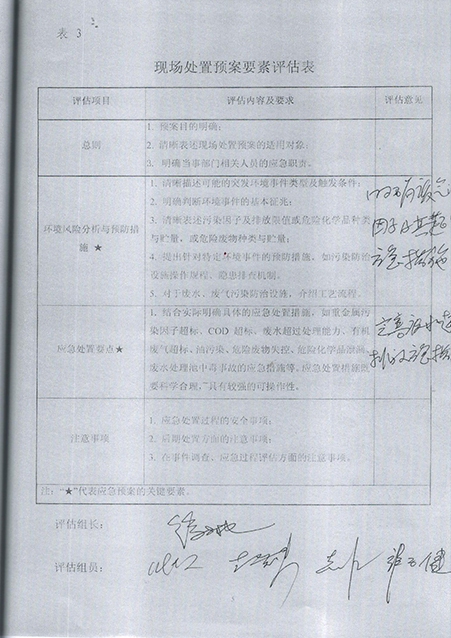 表 3
现场处置预案要素评估表
评估项目
评估内容及要求
评估意见
总则
1. 预案目的明确;
2. 清晰表述现场处置预案的适用对象;
3. 明确当事部门相关人员的应急职责。
环境风险分析与预防措
施 ★
1. 清晰描述可能的突发环境事件类型及触发条件;
2. 明确判断环境事件的基本征兆;
3. 清晰表述污染因子及排放限值或危险化学品种类
与贮量,或危险废物种类与贮量;
4. 提出针对特定环境事件的预防措施,如污染防治
设施操作规程、隐患排查机制。
5. 对于废水、废气污染防治设施,介绍工艺流程。
应急处置要点★
1. 结合实际明确具体的应急处置措施,如重金属污
染因子超标、COD 超标、废水超过处理能力、有机
废气超标、油污染、危险废物失控、危险化学品泄漏、
废水处理池中毒事故的应急措施等。应急处置措施既
要科学合理,具有较强的可操作性。
注意事项
1. 应急处置过程的安全事项;
2. 后期处置方面的注意事项;
3. 在事件调查、应急过程评估方面的注意事项。
注:"★"代表应急预案的关键要素。
评估组长:
评估组员: